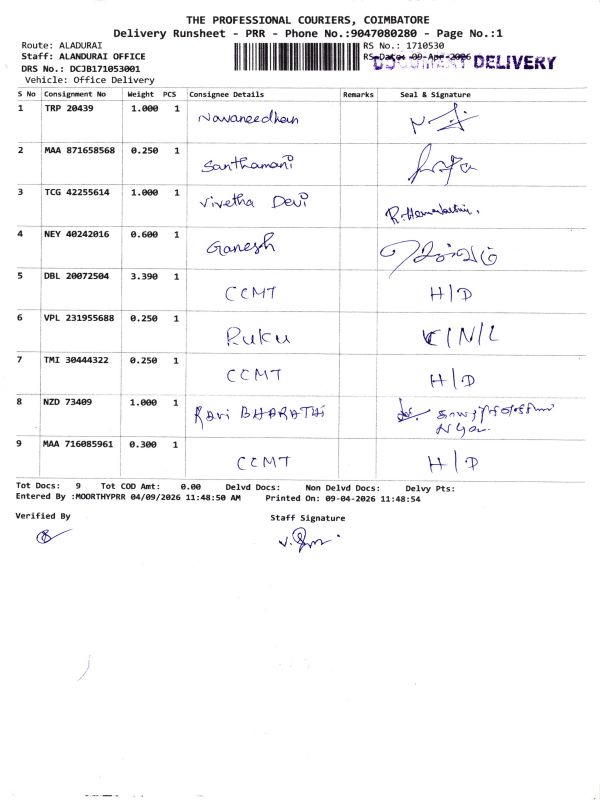 THE PROFESSIONAL COURIERS, COIMBATORE
Delivery Runsheet - PRR - Phone No.:9047080280 - Page No.:1
Route: ALADURAI
RS No.: 1710530
Staff: ALANDURAI OFFICE
RS Date: 09-Apr-2026
DOCUMENT DELIVERY
DRS No.: DCJB171053001
Vehicle: Office Delivery
S No Consignment No Weight PCS Consignee Details Remarks Seal & Signature
1 TRP 20439 1.000 1 Navaneedhan
2 MAA 871658568 0.250 1 Santhamani
3 TCG 42255614 1.000 1 Vivetha Devi
4 NEY 40242016 0.600 1 Ganesh
5 DBL 20072504 3.390 1 CCMT H/D
6 VPL 231955688 0.250 1 Ruku
7 TMI 30444322 0.250 1 CCMT H/D
8 NZD 73409 1.000 1 Ravi BHARATHi
9 MAA 716085961 0.300 1 CCMT H/D
Tot Docs: 9 Tot COD Amt: 0.00 Delvd Docs: Non Delvd Docs: Delvy Pts:
Entered By :MOORTHYPRR 04/09/2026 11:48:50 AM Printed On: 09-04-2026 11:48:54
Verified By Staff Signature